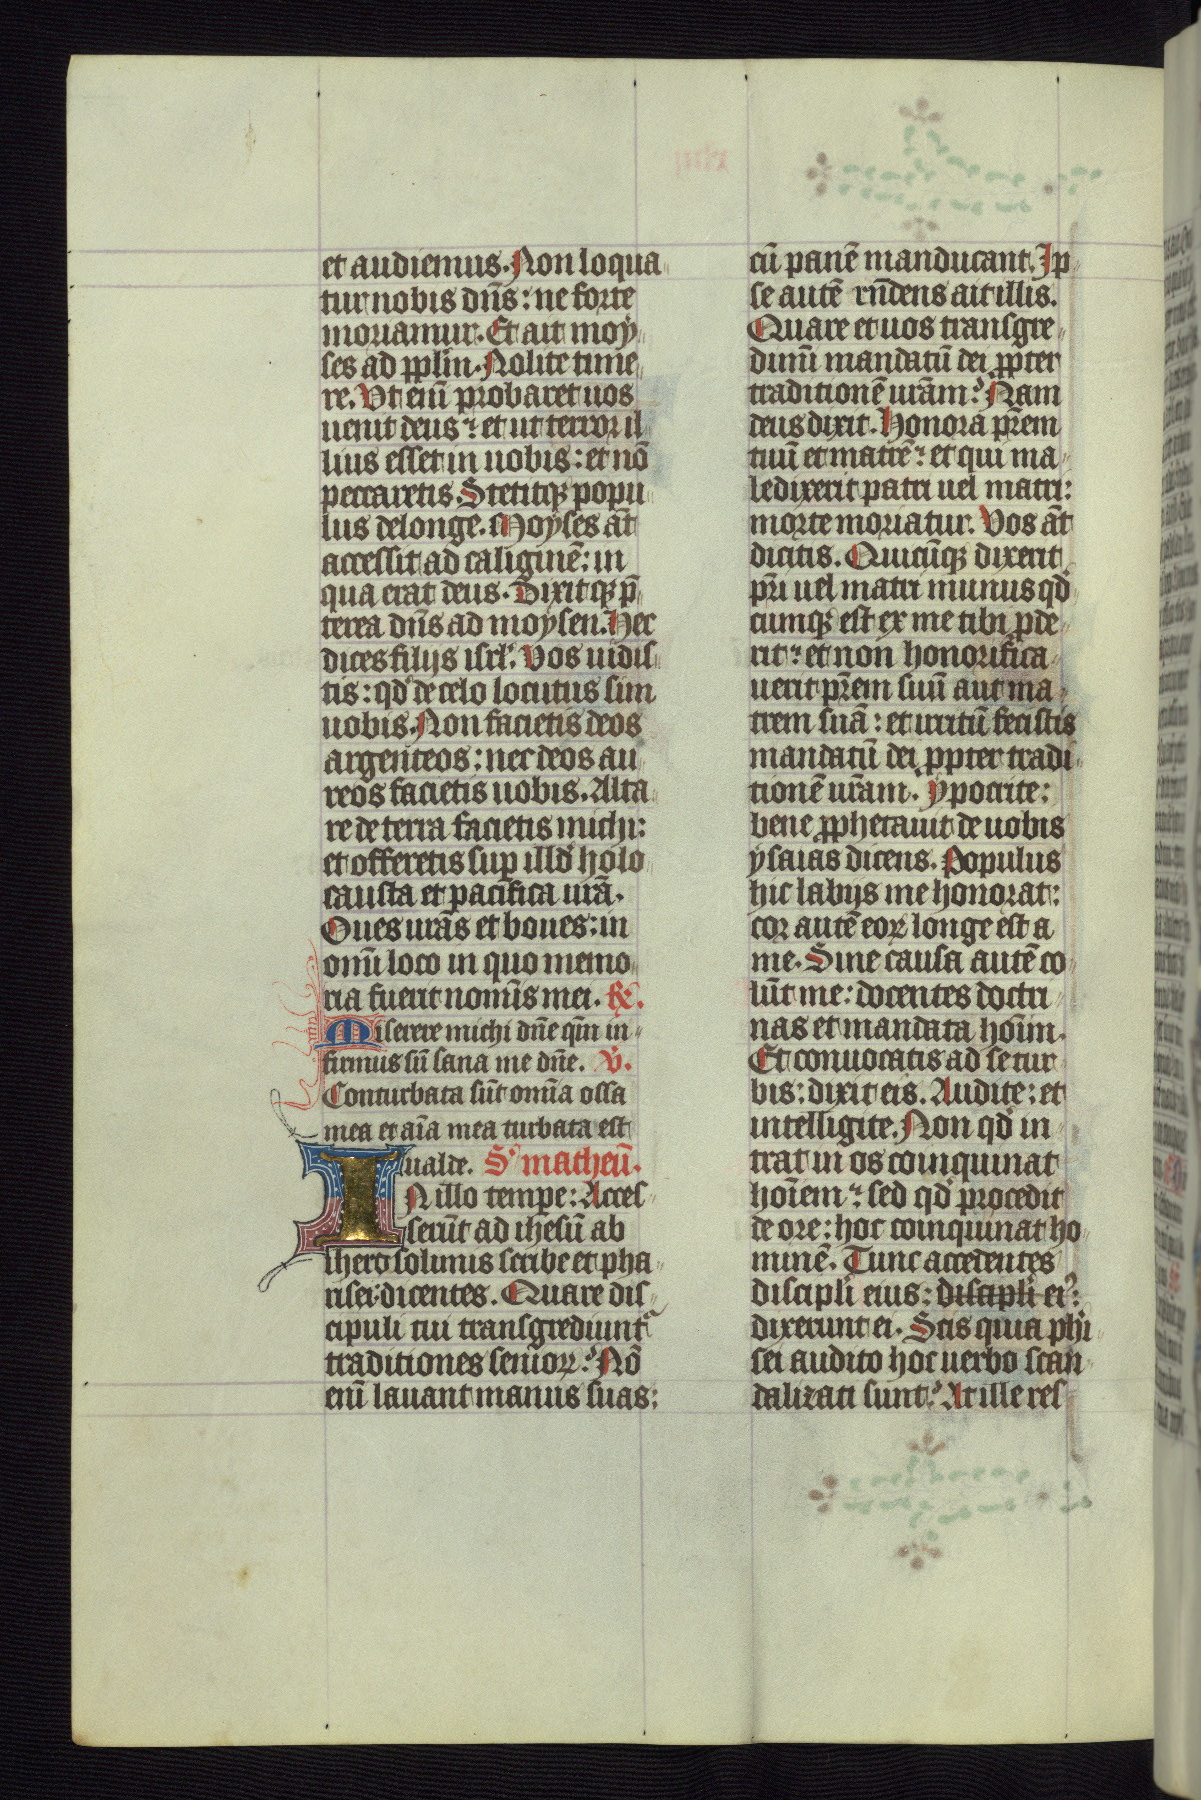 et audiemus. Non loqua
tur nobis dn̄s: ne forte
moriamur. Et ait moy
ses ad pplm̄. Nolite time
re. Ut eni̅ probaret uos
uenit deus: et ut terror il
lius esset in uobis: et nō
peccaretis. Stetitqȝ popu
lus delonge. Moyses aūt
accessit ad caliginē: in
qua erat deus. Dixitqȝ p̄
terea dn̄s ad moysen. Hec
dices filijs isrl̄. Vos uidis
tis: qd̄ de celo locutus sim
uobis. Non facietis deos
argenteos: nec deos au
reos facietis uobis. Alta
re de terra facietis michi:
et offeretis sup illd̄ holo
causta et pacifica ur̄a.
Oues ur̄as et boues: in
omi̅ loco in quo memo
ria fuerit nomi̅s mei. R̃.
Miserere michi dn̄e qm̄ in
firmus su̅ sana me dn̄e. V̄.
Conturbata sūt omi̅a ossa
mea et ai̅a mea turbata est
ualde. S. matheū.
IN illo tempe: Acces
serūt ad ihesū ab
iherosolimis scribe et pha
risei: dicentes. Quare dis
cipuli tui transgrediunt̄
traditiones senioꝝ? Nō
eni̅ lauant manus suas:
cū panē manducant. Ip
se autē rn̄dens ait illis.
Quare et uos transgre
dimi̅ mandatū dei ꝓpter
traditionē ur̄am? Nam
deus dixit. Honora pr̄em
tuū et matrē: et qui ma
ledixerit patri uel matri:
morte moriatur. Vos aūt
dicitis. Quicūqȝ dixerit
pr̄i uel matri munus qd̄
cumqȝ est ex me tibi ꝓde
rit: et non honorifica
uerit pr̄em suū aut ma
trem suā: et irritū fecistis
mandatū dei ꝓpter tradi
tionē ur̄am. ypocrite:
bene ꝓphetauit de uobis
ysaias dicens. Populus
hic labijs me honorat:
cor autē eoꝝ longe est a
me. Sine causa autē co
lūt me: docentes doctri
nas et mandata hoi̅m.
Et conuocatis ad se tur
bis: dixit eis. Audite: et
intelligite. Non qd̄ in
trat in os coinquinat
hoi̅em: sed qd̄ procedit
de ore: hoc coinquinat ho
minē. Tunc accedentes
discipl̄i eius: discipl̄i ei9:
dixerunt ei. Scis quia phi
sei audito hoc uerbo scan
dalizati sunt? At ille res